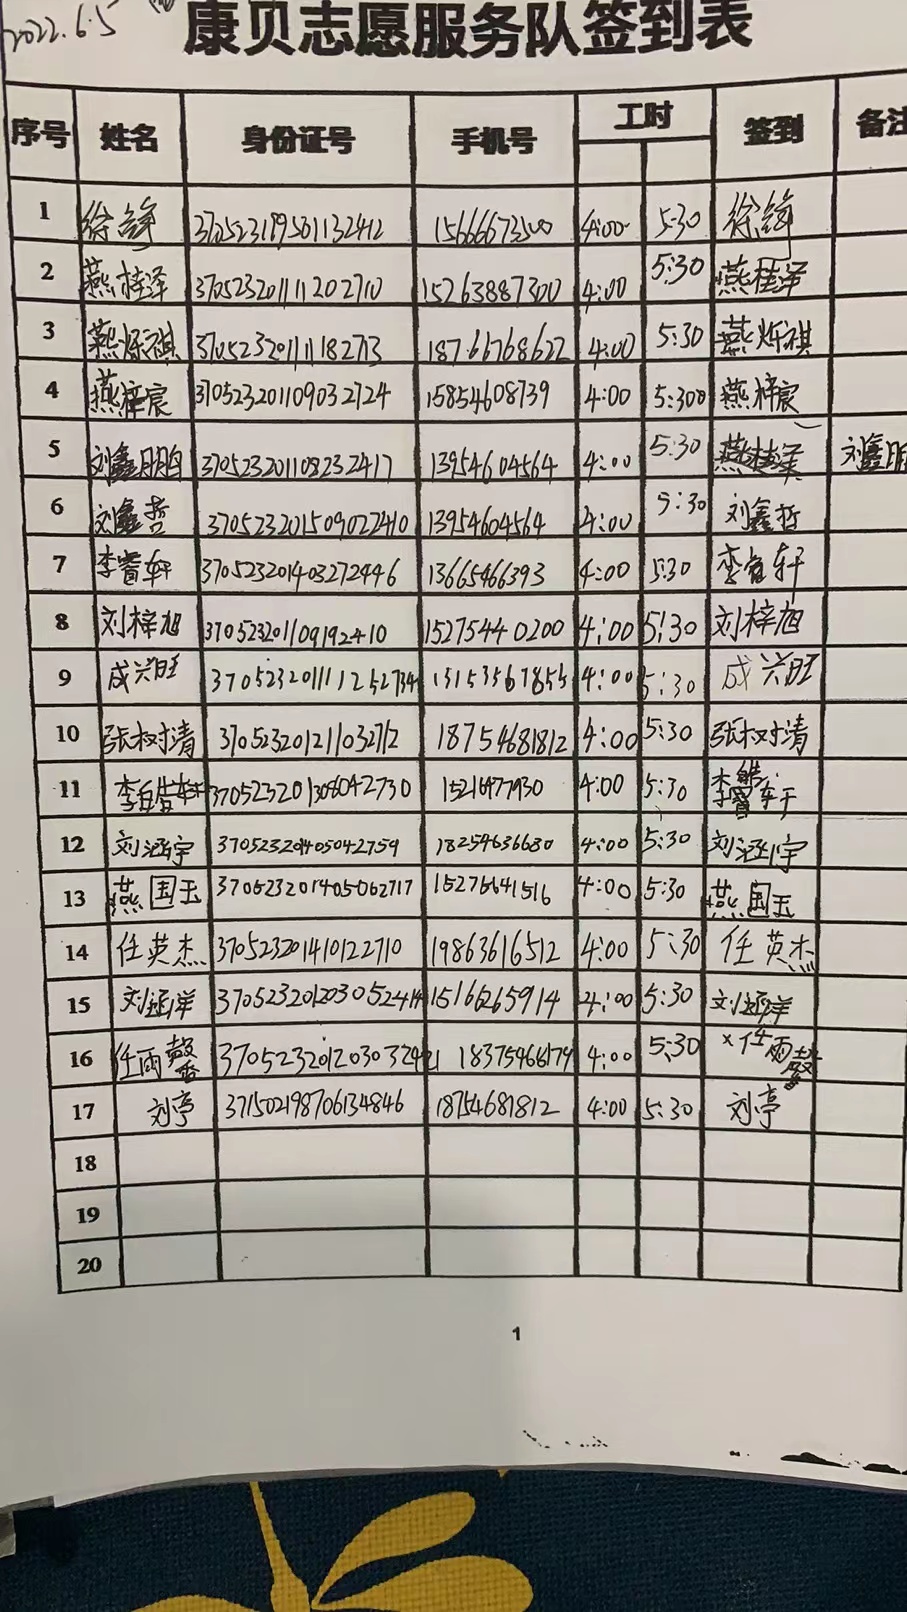 2022.6.5
康贝志愿服务队签到表
序号 姓名 身份证号 手机号 工时 签到 备注
1 徐锋 15666673500 4:00 5:30 徐锋
2 燕桂泽 370523201111202710 15263887300 4:00 5:30 燕桂泽
3 燕烁祺 370523201111182713 18766768622 4:00 5:30 燕烁祺
4 燕梓宸 370523201109032724 15854608739 4:00 5:300 燕梓宸
5 刘鑫朋 370523201108232417 13954604564 4:00 5:30 燕桂泽 刘鑫朋
6 刘鑫哲 370523201509022410 13954604564 4:00 5:30 刘鑫哲
7 李睿轩 370523201403272446 13665466393 4:00 5:30 李睿轩
8 刘梓旭 370523201109192410 15275440200 4:00 5:30 刘梓旭
9 成兴旺 4:00 5:30 成兴旺
10 张树清 370523201211032712 18754681812 4:00 5:30 张树清
11 370523201308042730 4:00 5:30
12 刘涵宇 370523201405042759 18254636680 4:00 5:30 刘涵宇
13 燕国玉 370523201405062717 15275641516 4:00 5:30 燕国玉
14 任英杰 370523201410122710 19863616512 4:00 5:30 任英杰
15 370523201203052414 15166265914 4:00 5:30
16 任雨馨 4:00 5:30 ×任雨馨
17 刘亭 371502198706134846 18754681812 4:00 5:30 刘亭
18
19
20
1